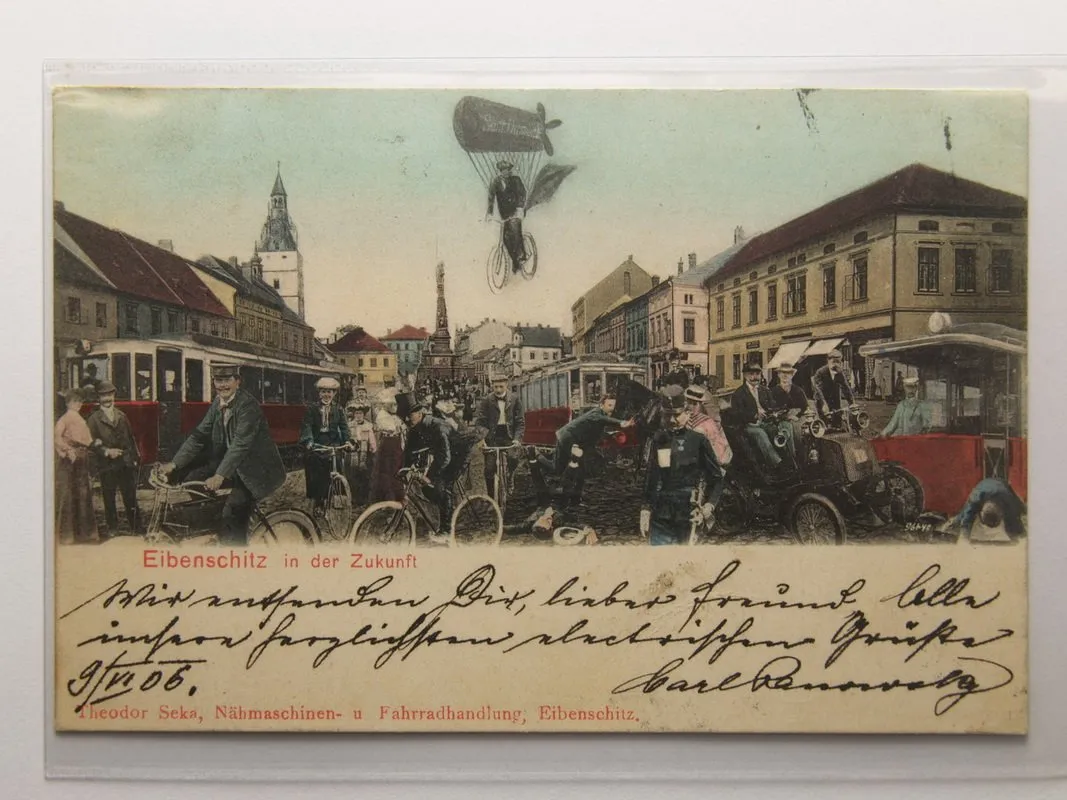 Eibenschitz in der Zukunft
Wir entsenden Dir, lieber Freund, Alle
unsere herzlichsten electrischen Grüße
9/VI 06. Carl
Theodor Seka, Nähmaschinen- u Fahrradhandlung, Eibenschitz.